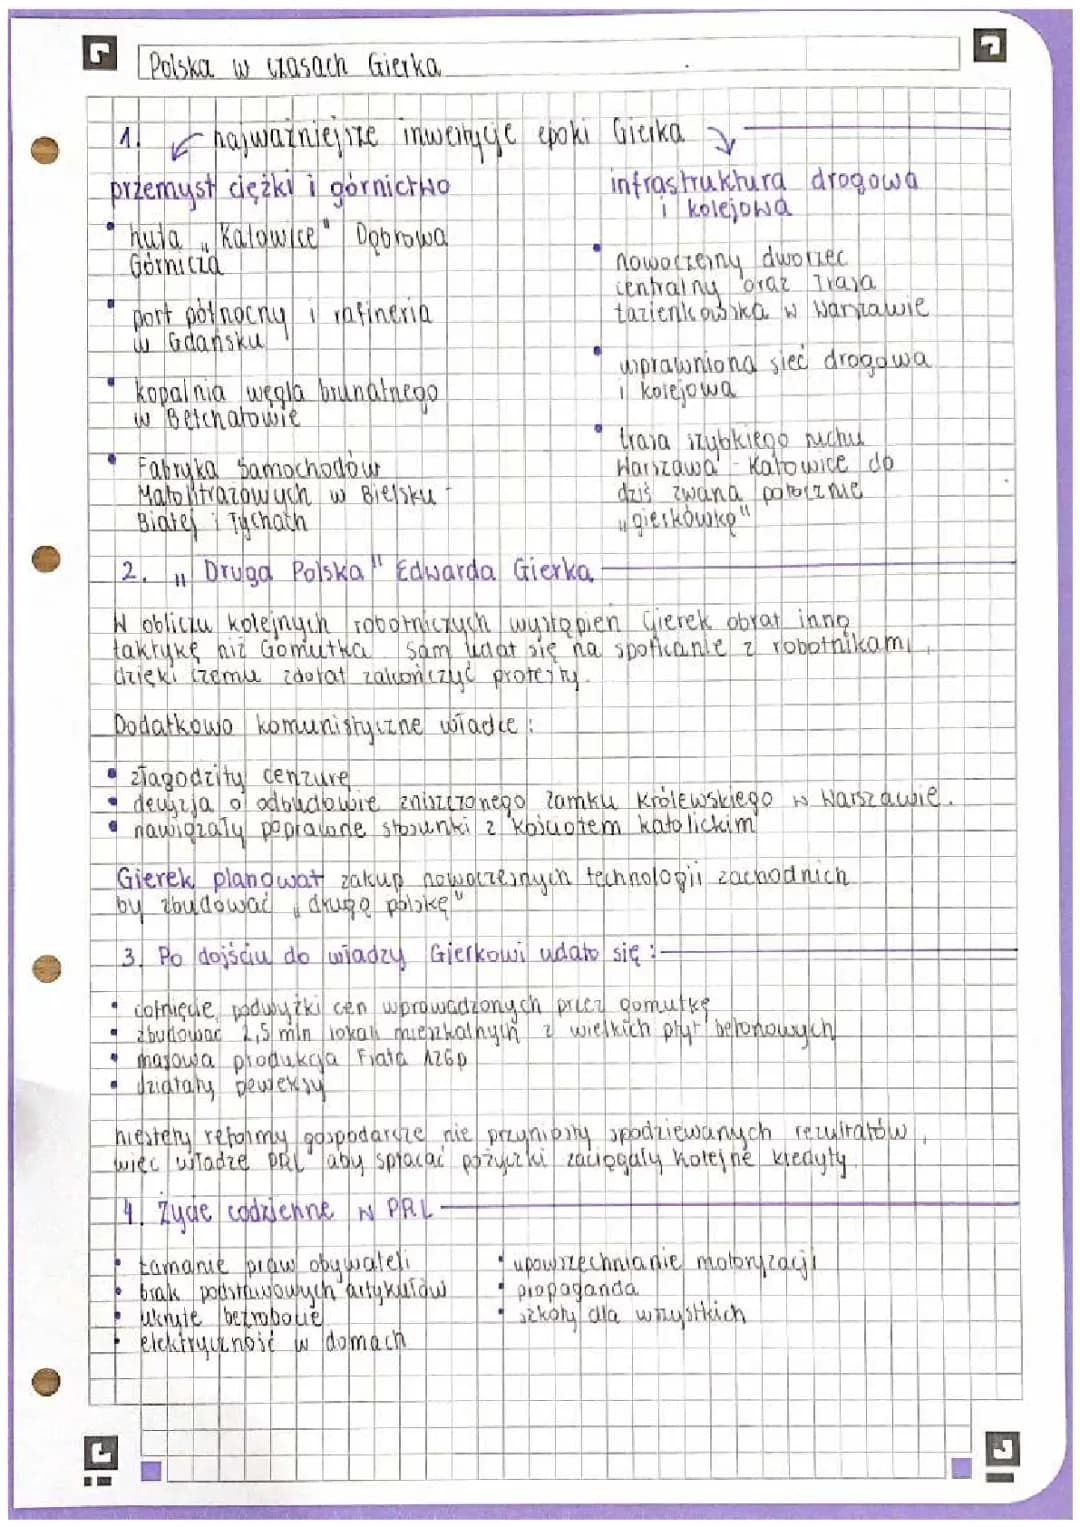 Polska w czasach Gierka
1. najważniejsze inwestycje epoki Gierka
przemysł ciężki i górnictwo
huta „Katowice" Dąbrowa
Górnicza
port północny i rafineria
w Gdańsku
kopalnia węgla brunatnego
w Bełchatowie
Fabryka Samochodów
Małolitrażowych w Bielsku-
Białej i Tychach
infrastruktura drogowa
i kolejowa
nowoczesny dworzec
centralny oraz Trasa
Łazienkowska w Warszawie
usprawniona sieć drogowa
i kolejowa
trasa szybkiego ruchu
Warszawa - Katowice do
dziś zwana potocznie
„gierkówką"
2. „Druga Polska" Edwarda Gierka
W obliczu kolejnych robotniczych wystąpień Gierek obrał inną
taktykę niż Gomułka. Sam udał się na spotkanie z robotnikami,
dzięki czemu zdołał zakończyć protesty.
Dodatkowo komunistyczne władze:
złagodziły cenzurę
decyzja o odbudowie zniszczonego zamku Królewskiego w Warszawie.
nawiązały poprawne stosunki z kościołem katolickim
Gierek planował zakup nowoczesnych technologii zachodnich
by zbudować „drugą polskę"
3. Po dojściu do władzy Gierkowi udało się:
cofnięcie podwyżki cen wprowadzonych przez gomułkę
zbudować 2,5 mln lokali mieszkalnych z wielkich płyt betonowych
masowa produkcja Fiata 126p
działały peweksy
niestety reformy gospodarcze nie przyniosły spodziewanych rezultatów,
więc władze PRL aby spłacać pożyczki zaciągały kolejne kredyty.
4. Życie codzienne w PRL
łamanie praw obywateli
brak podstawowych artykułów
ukryte bezrobocie
elektryczność w domach
upowszechnianie motoryzacji
propaganda
szkoły dla wszystkich